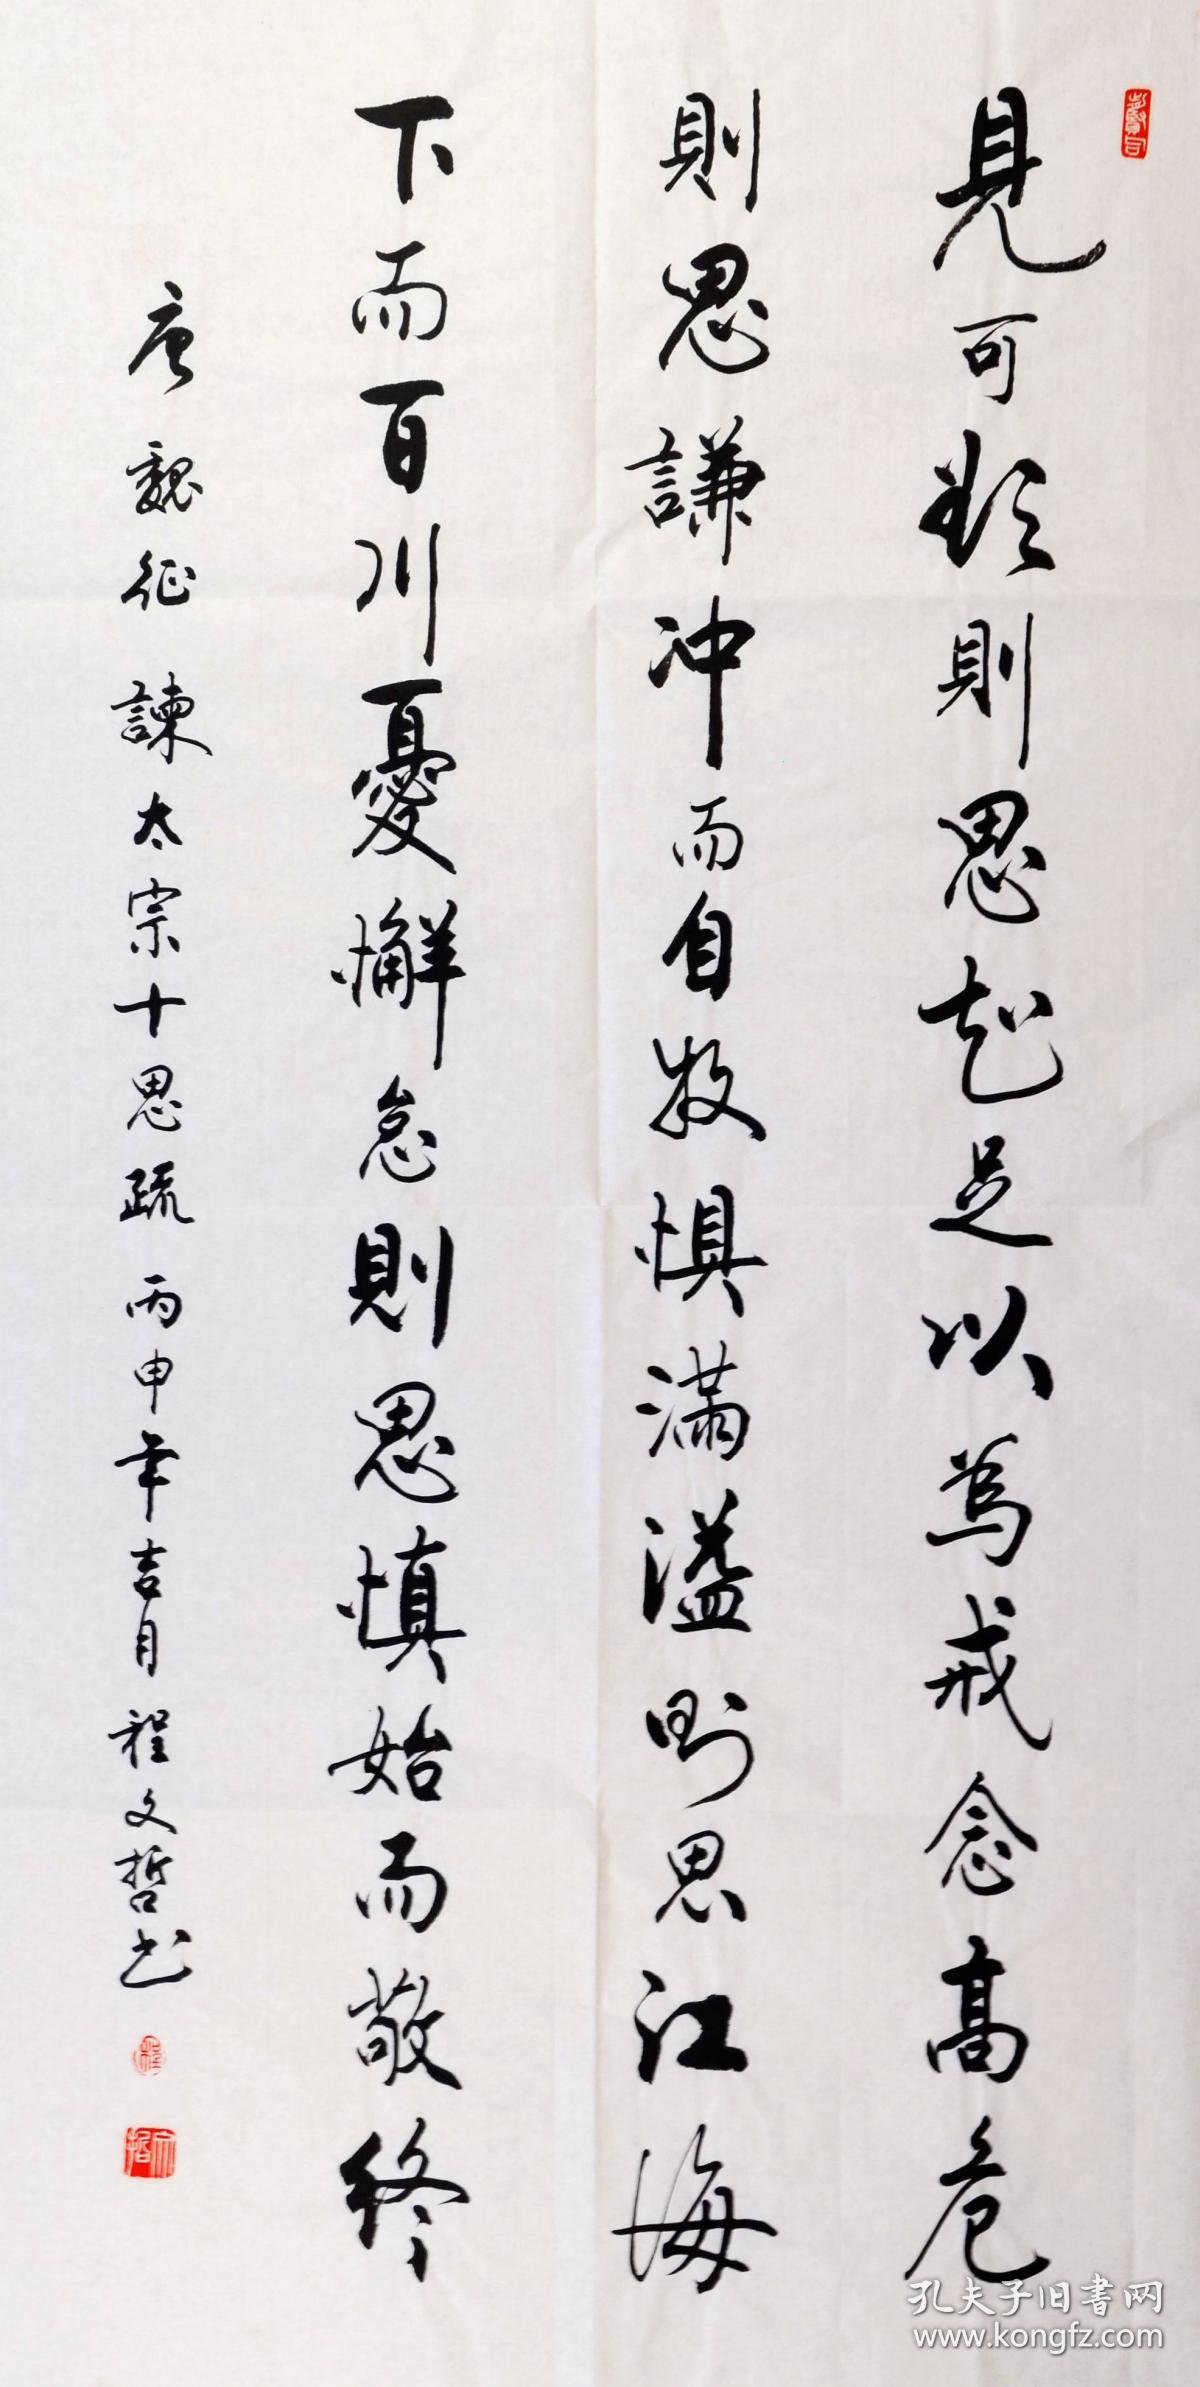 見可欲則思知足以為戒念高危
則思謙冲而自牧惧滿溢則思江海
下而百川憂懈怠則思慎始而敬終
唐魏征 諫太宗十思疏 丙申年吉月程文哲书
程
文哲
孔夫子旧書网
www.kongfz.com